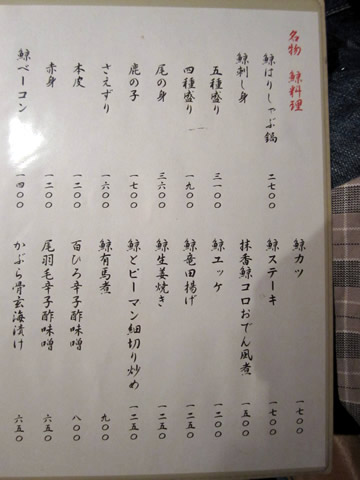 名物 鯨料理
鯨はりしゃぶ鍋 二七〇〇
鯨刺し身
五種盛り 三一〇〇
四種盛り 一九〇〇
尾の身 三六〇〇
鹿の子 一七〇〇
さえずり 一六〇〇
本皮 一二〇〇
赤身 一二〇〇
鯨ベーコン 一四〇〇
鯨カツ 一七〇〇
鯨ステーキ 一七〇〇
抹香鯨コロおでん風煮 一五〇〇
鯨ユッケ 一二〇〇
鯨竜田揚げ 一二五〇
鯨生姜焼き 一二五〇
鯨とピーマン細切り炒め 一二五〇
鯨有馬煮 九〇〇
百ひろ辛子酢味噌 八〇〇
尾羽毛辛子酢味噌 六五〇
かぶら骨玄海漬け 六五〇